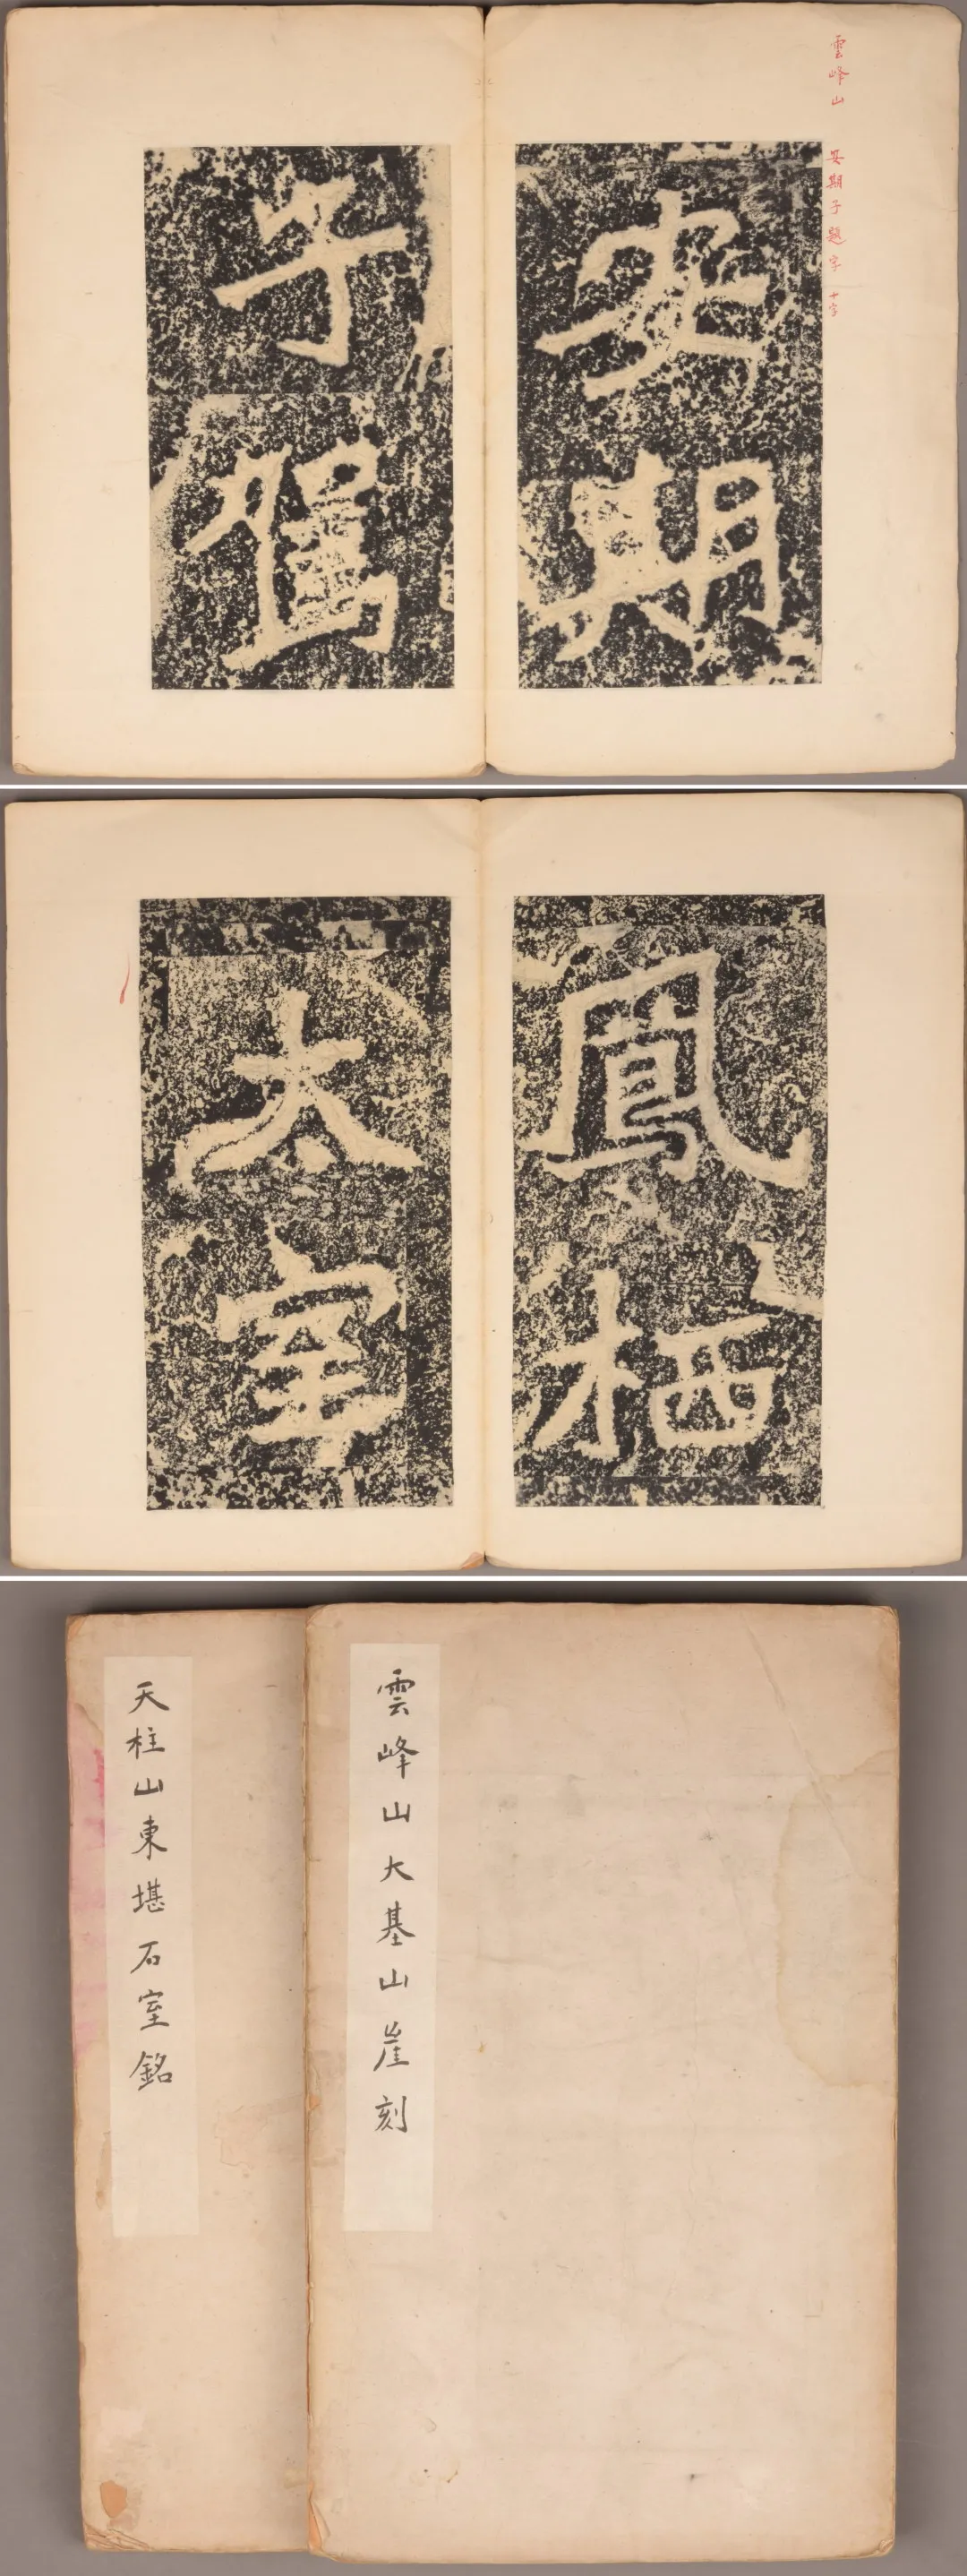 雲峰山 安期子題字 十字
安期
子駕
鳳栖
太室
雲峰山大基山崖刻
天柱山東堪石室銘